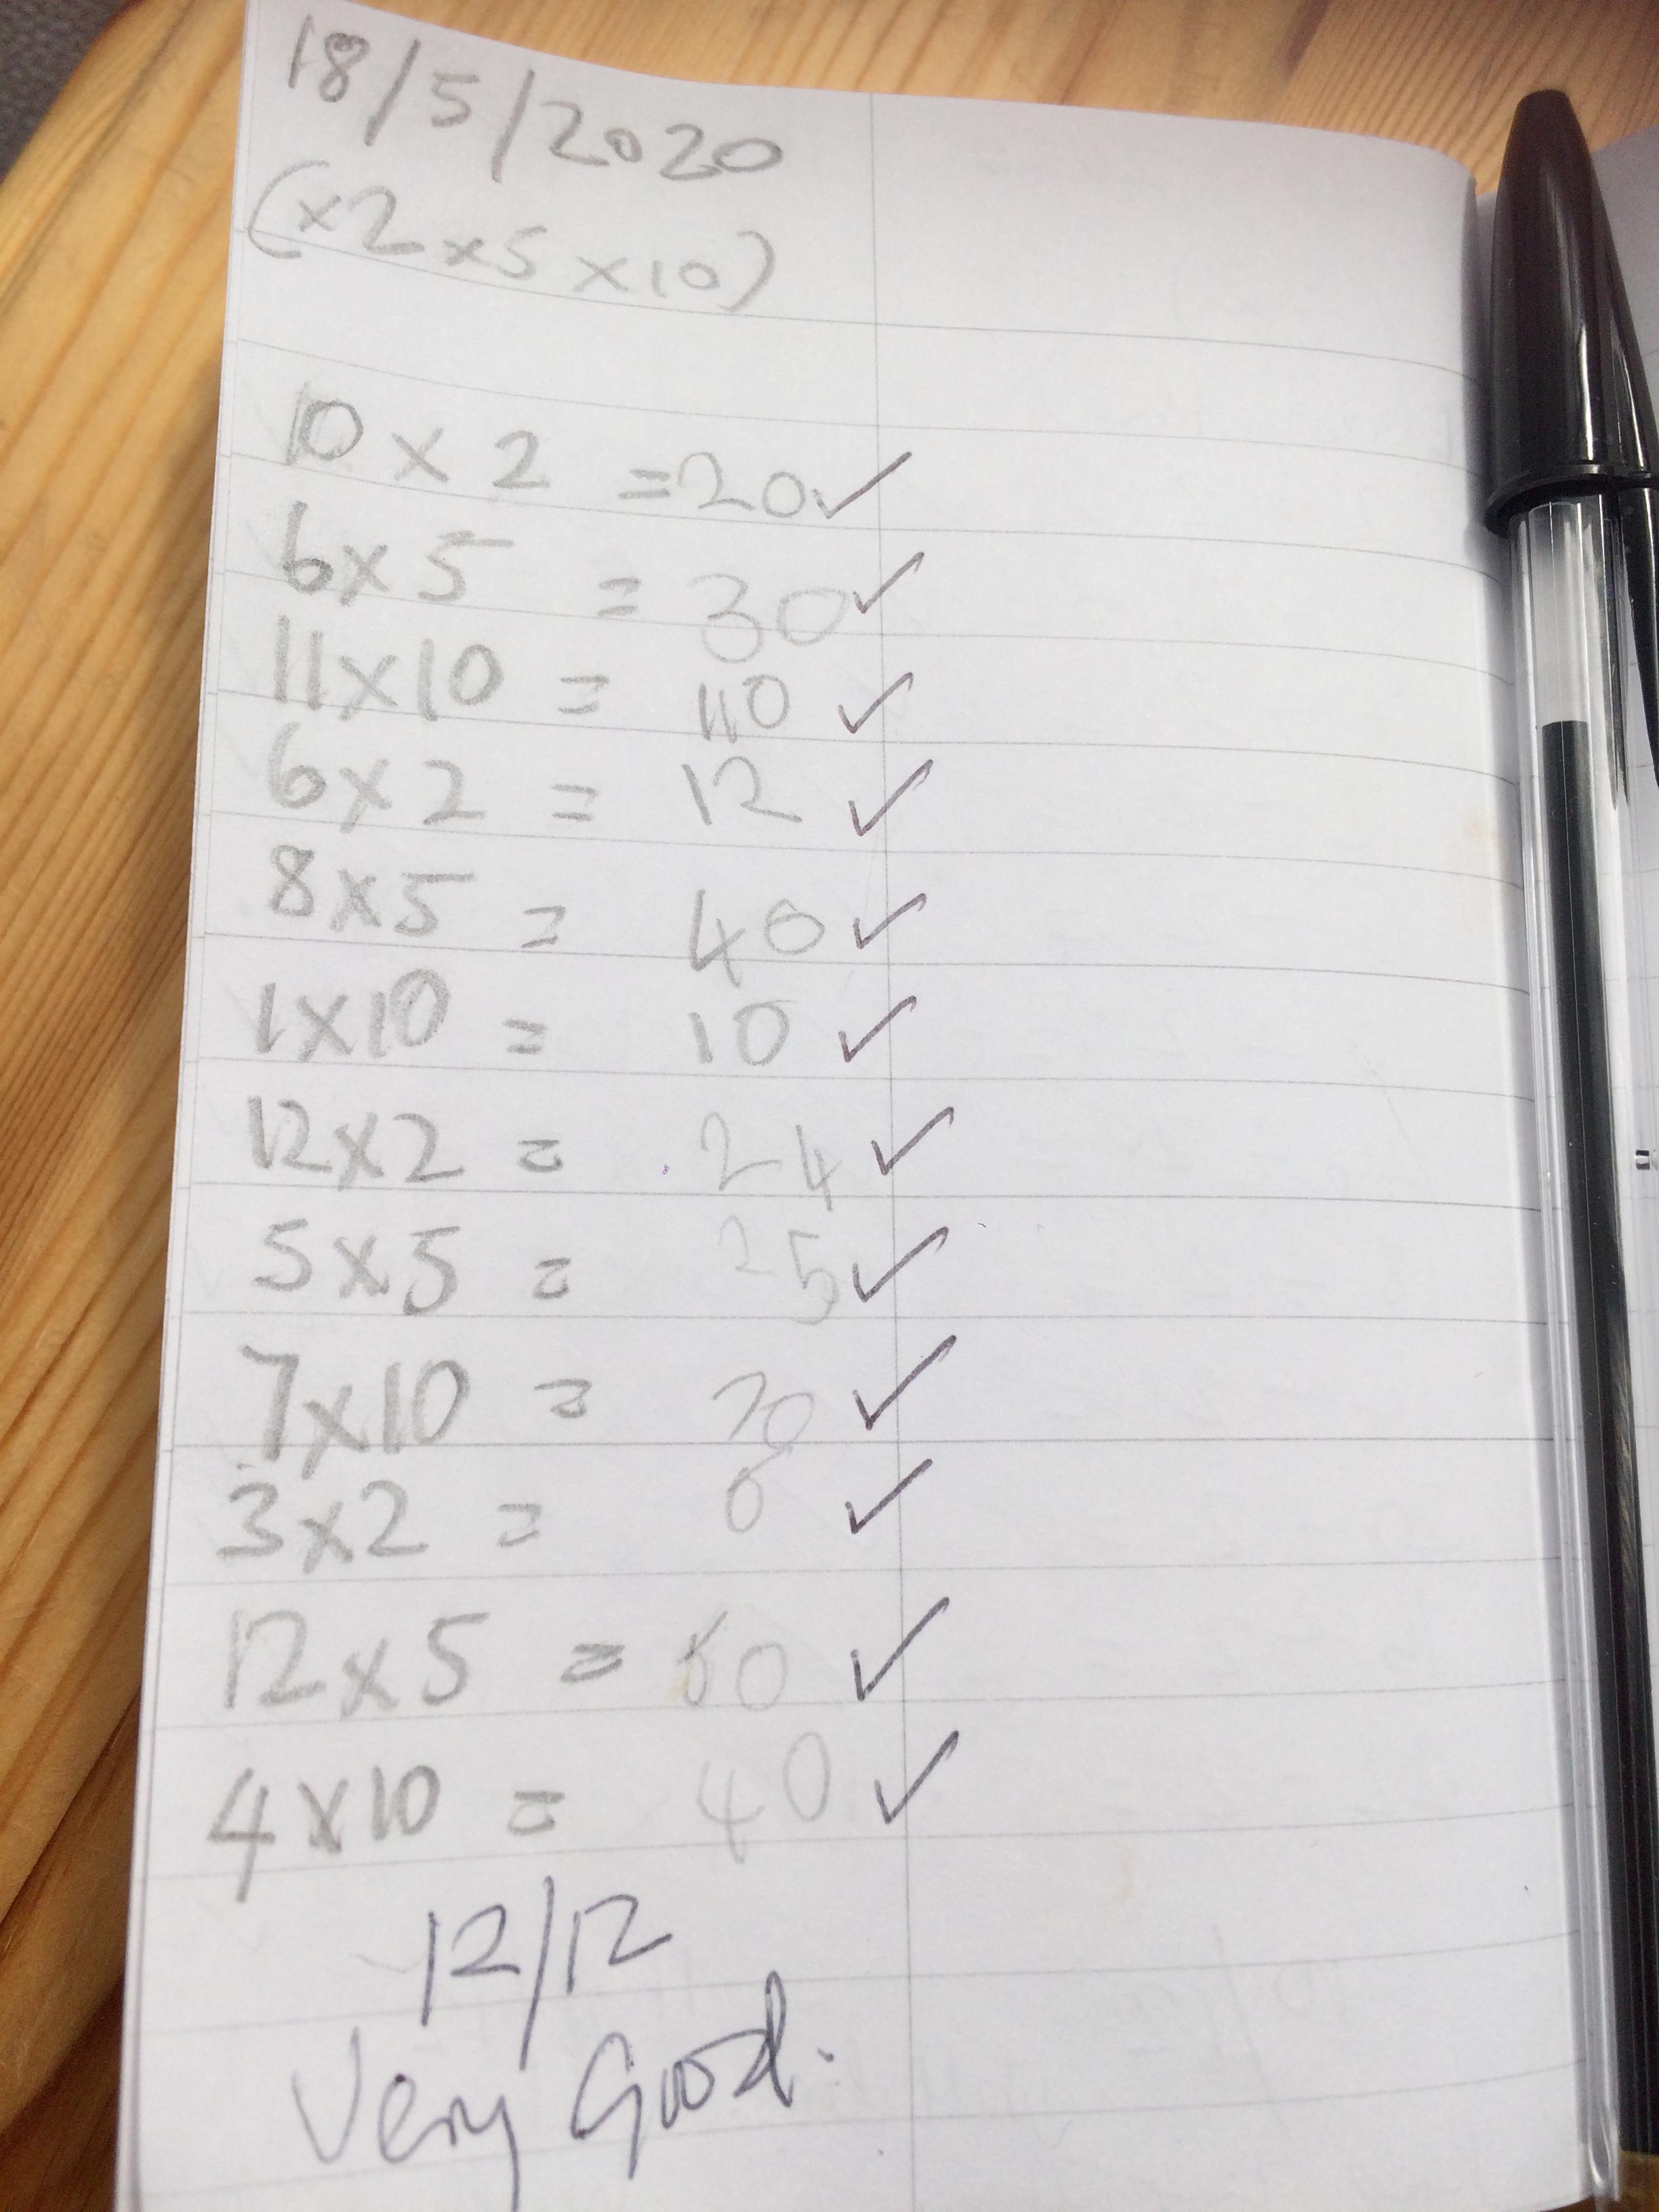 18/5/2020
(×2 ×5 ×10)
10 × 2 = 20 ✓
6 × 5 = 30 ✓
11 × 10 = 110 ✓
6 × 2 = 12 ✓
8 × 5 = 40 ✓
1 × 10 = 10 ✓
12 × 2 = 24 ✓
5 × 5 = 25 ✓
7 × 10 = 70 ✓
3 × 2 = 6 ✓
12 × 5 = 60 ✓
4 × 10 = 40 ✓
12/12
Very Good.